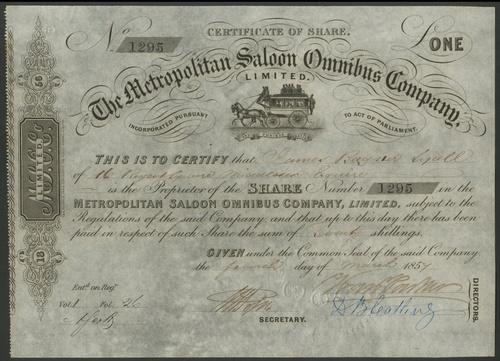 CERTIFICATE OF SHARE.
No 1295
£ONE
The Metropolitan Saloon Omnibus Company,
LIMITED.
INCORPORATED PURSUANT TO ACT OF PARLIAMENT.
THIS IS TO CERTIFY that James
of 16 Regent Square Esquire
is the Proprietor of the SHARE Number 1295 in the
METROPOLITAN SALOON OMNIBUS COMPANY, LIMITED, subject to the
Regulations of the said Company and that up to this day there has been
paid in respect of such Share the sum of Twenty shillings.
GIVEN under the Common Seal of the said Company
the fourth day of March 1857
Entd. on Regr.
Vol. 1 Fol. 26
Clerk
SECRETARY.
DIRECTORS.
18 56
LIMITED.